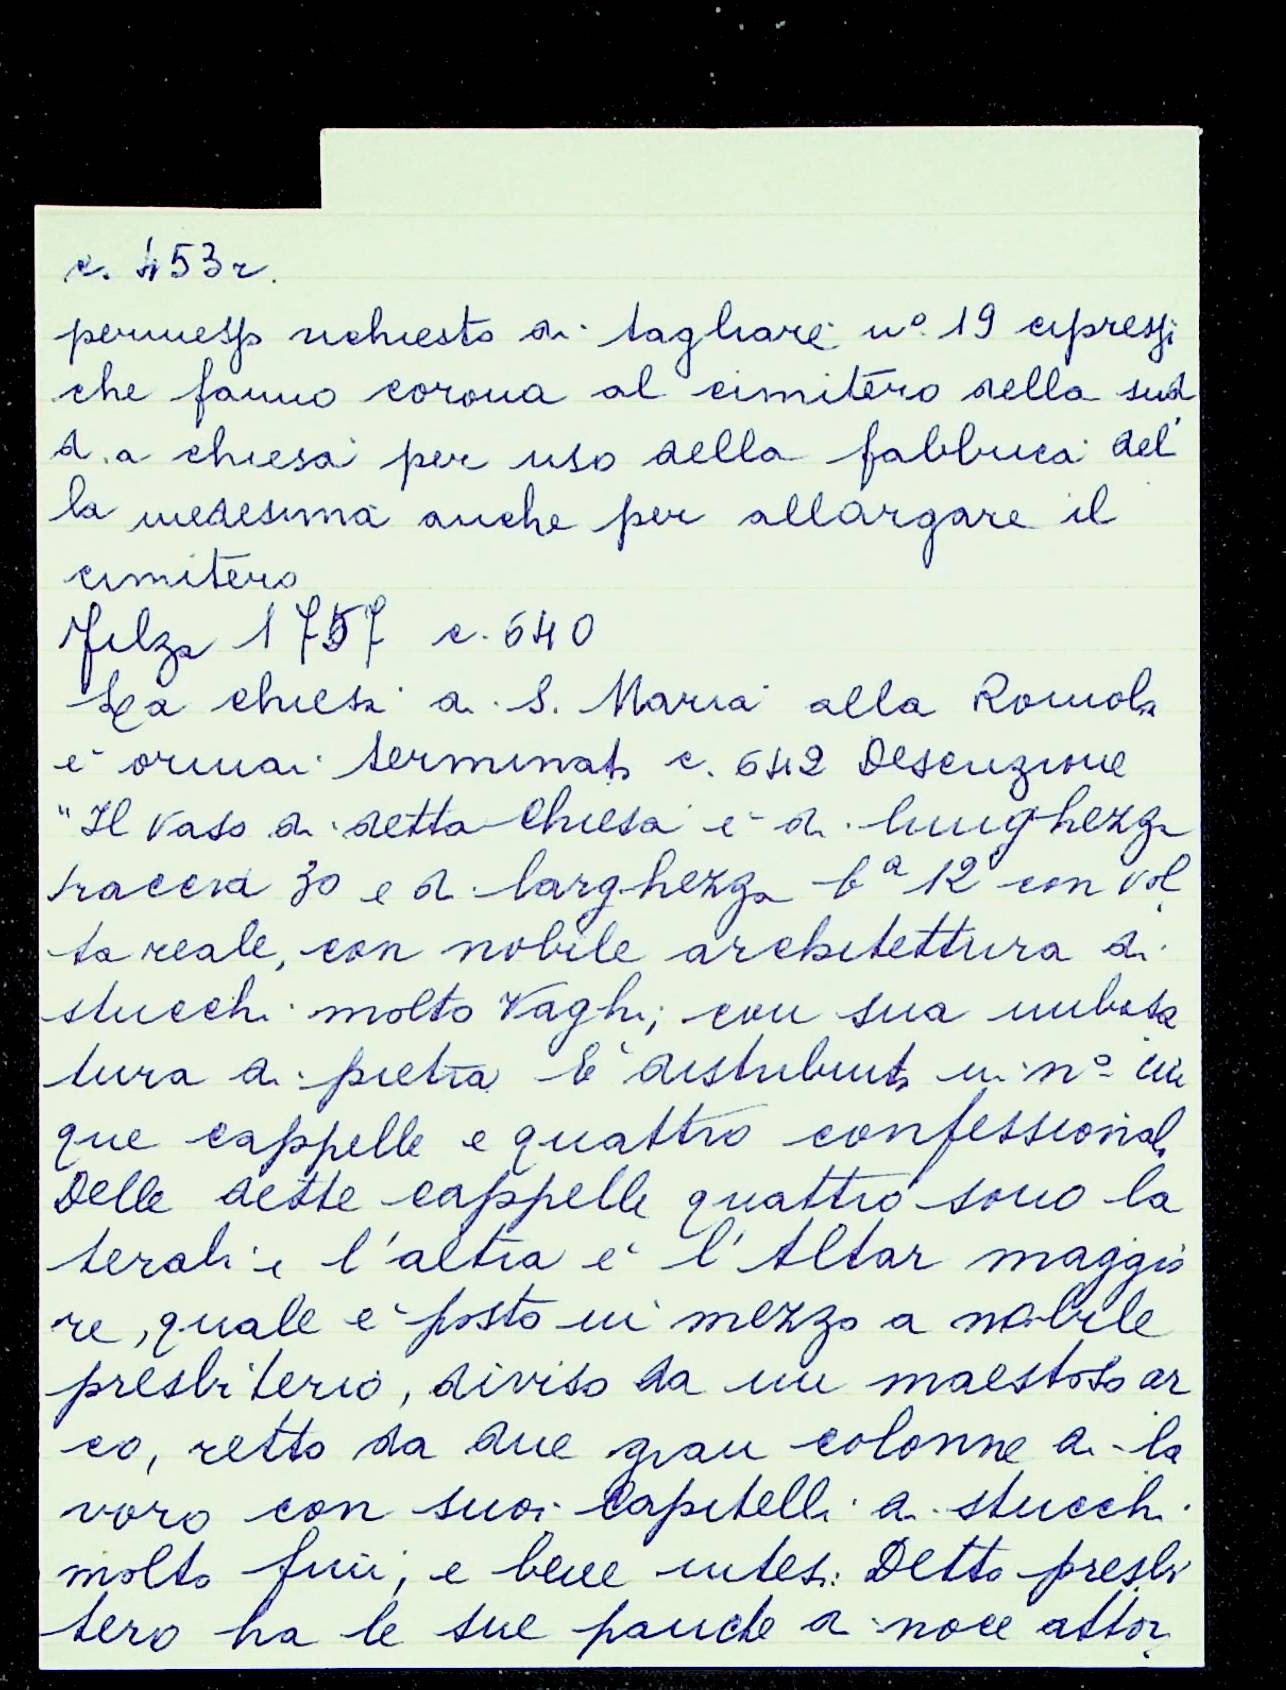 c. 453r.
permesso richiesto di tagliare n° 19 cipressi
che fanno corona al cimitero della sud
d.a chiesa per uso della fabbrica del
la medesima anche per allargare il
cimitero
Filza 1757 c. 640
La chiesa di S. Maria alla Romola
è ormai terminata c. 642 Descrizione
"Il vaso di detta Chiesa è di lunghezza
braccia 30 e di larghezza b.a 12 con vol
ta reale, con nobile architettura di
stucchi molto vaghi; con sua imbasa
tura di pietra E' distribuita in n° cin
que cappelle e quattro confessionali
Delle dette cappelle quattro sono la
terali e l'altra è l'Altar maggio
re, quale è posto in mezzo a nobile
presbiterio, diviso da un maestoso ar
co, retto da due gran colonne di la
voro con suoi capitelli di stucchi
molto fini, e bene intesi. Detto presbi
tero ha le sue panche di noce attor